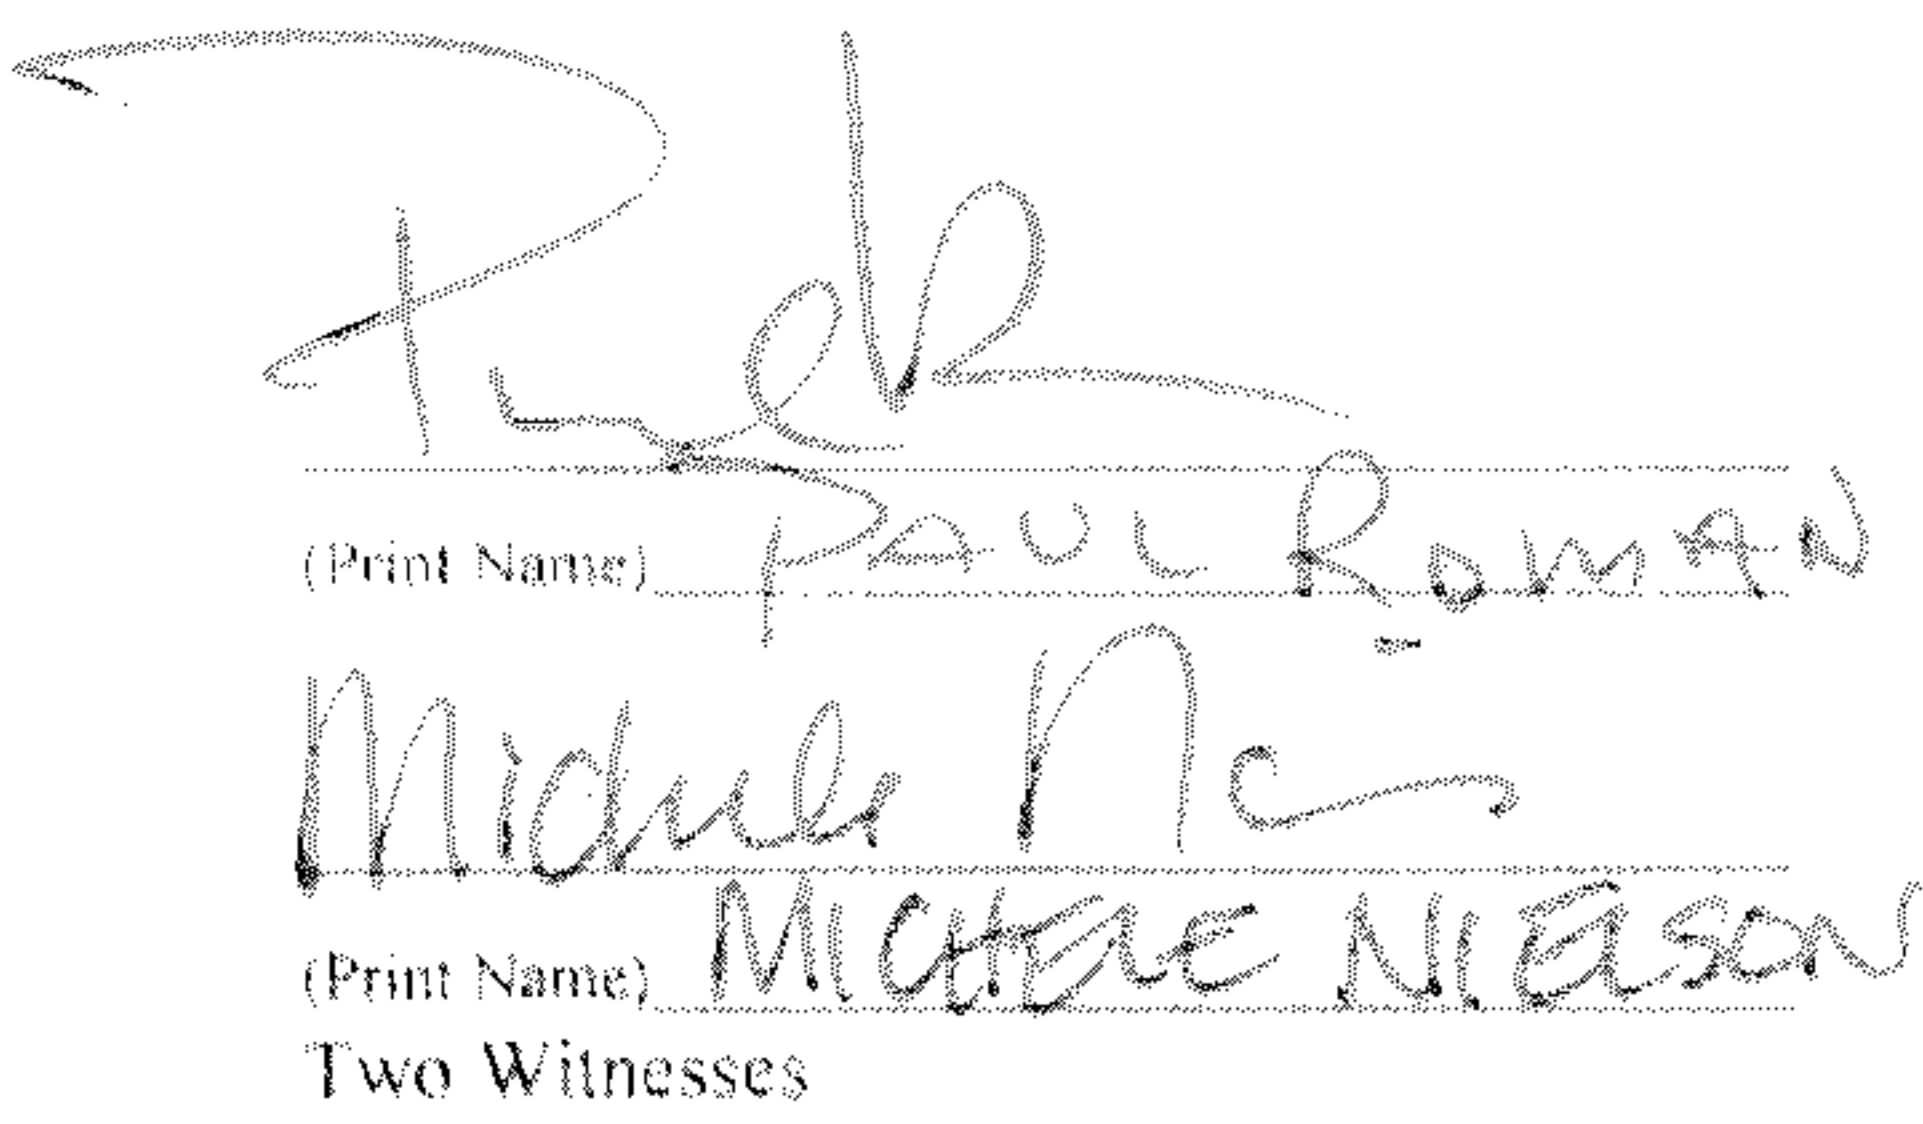 (Print Name) PAUL ROMAN
Michele
(Print Name) MICHELE NIELSON
Two Witnesses